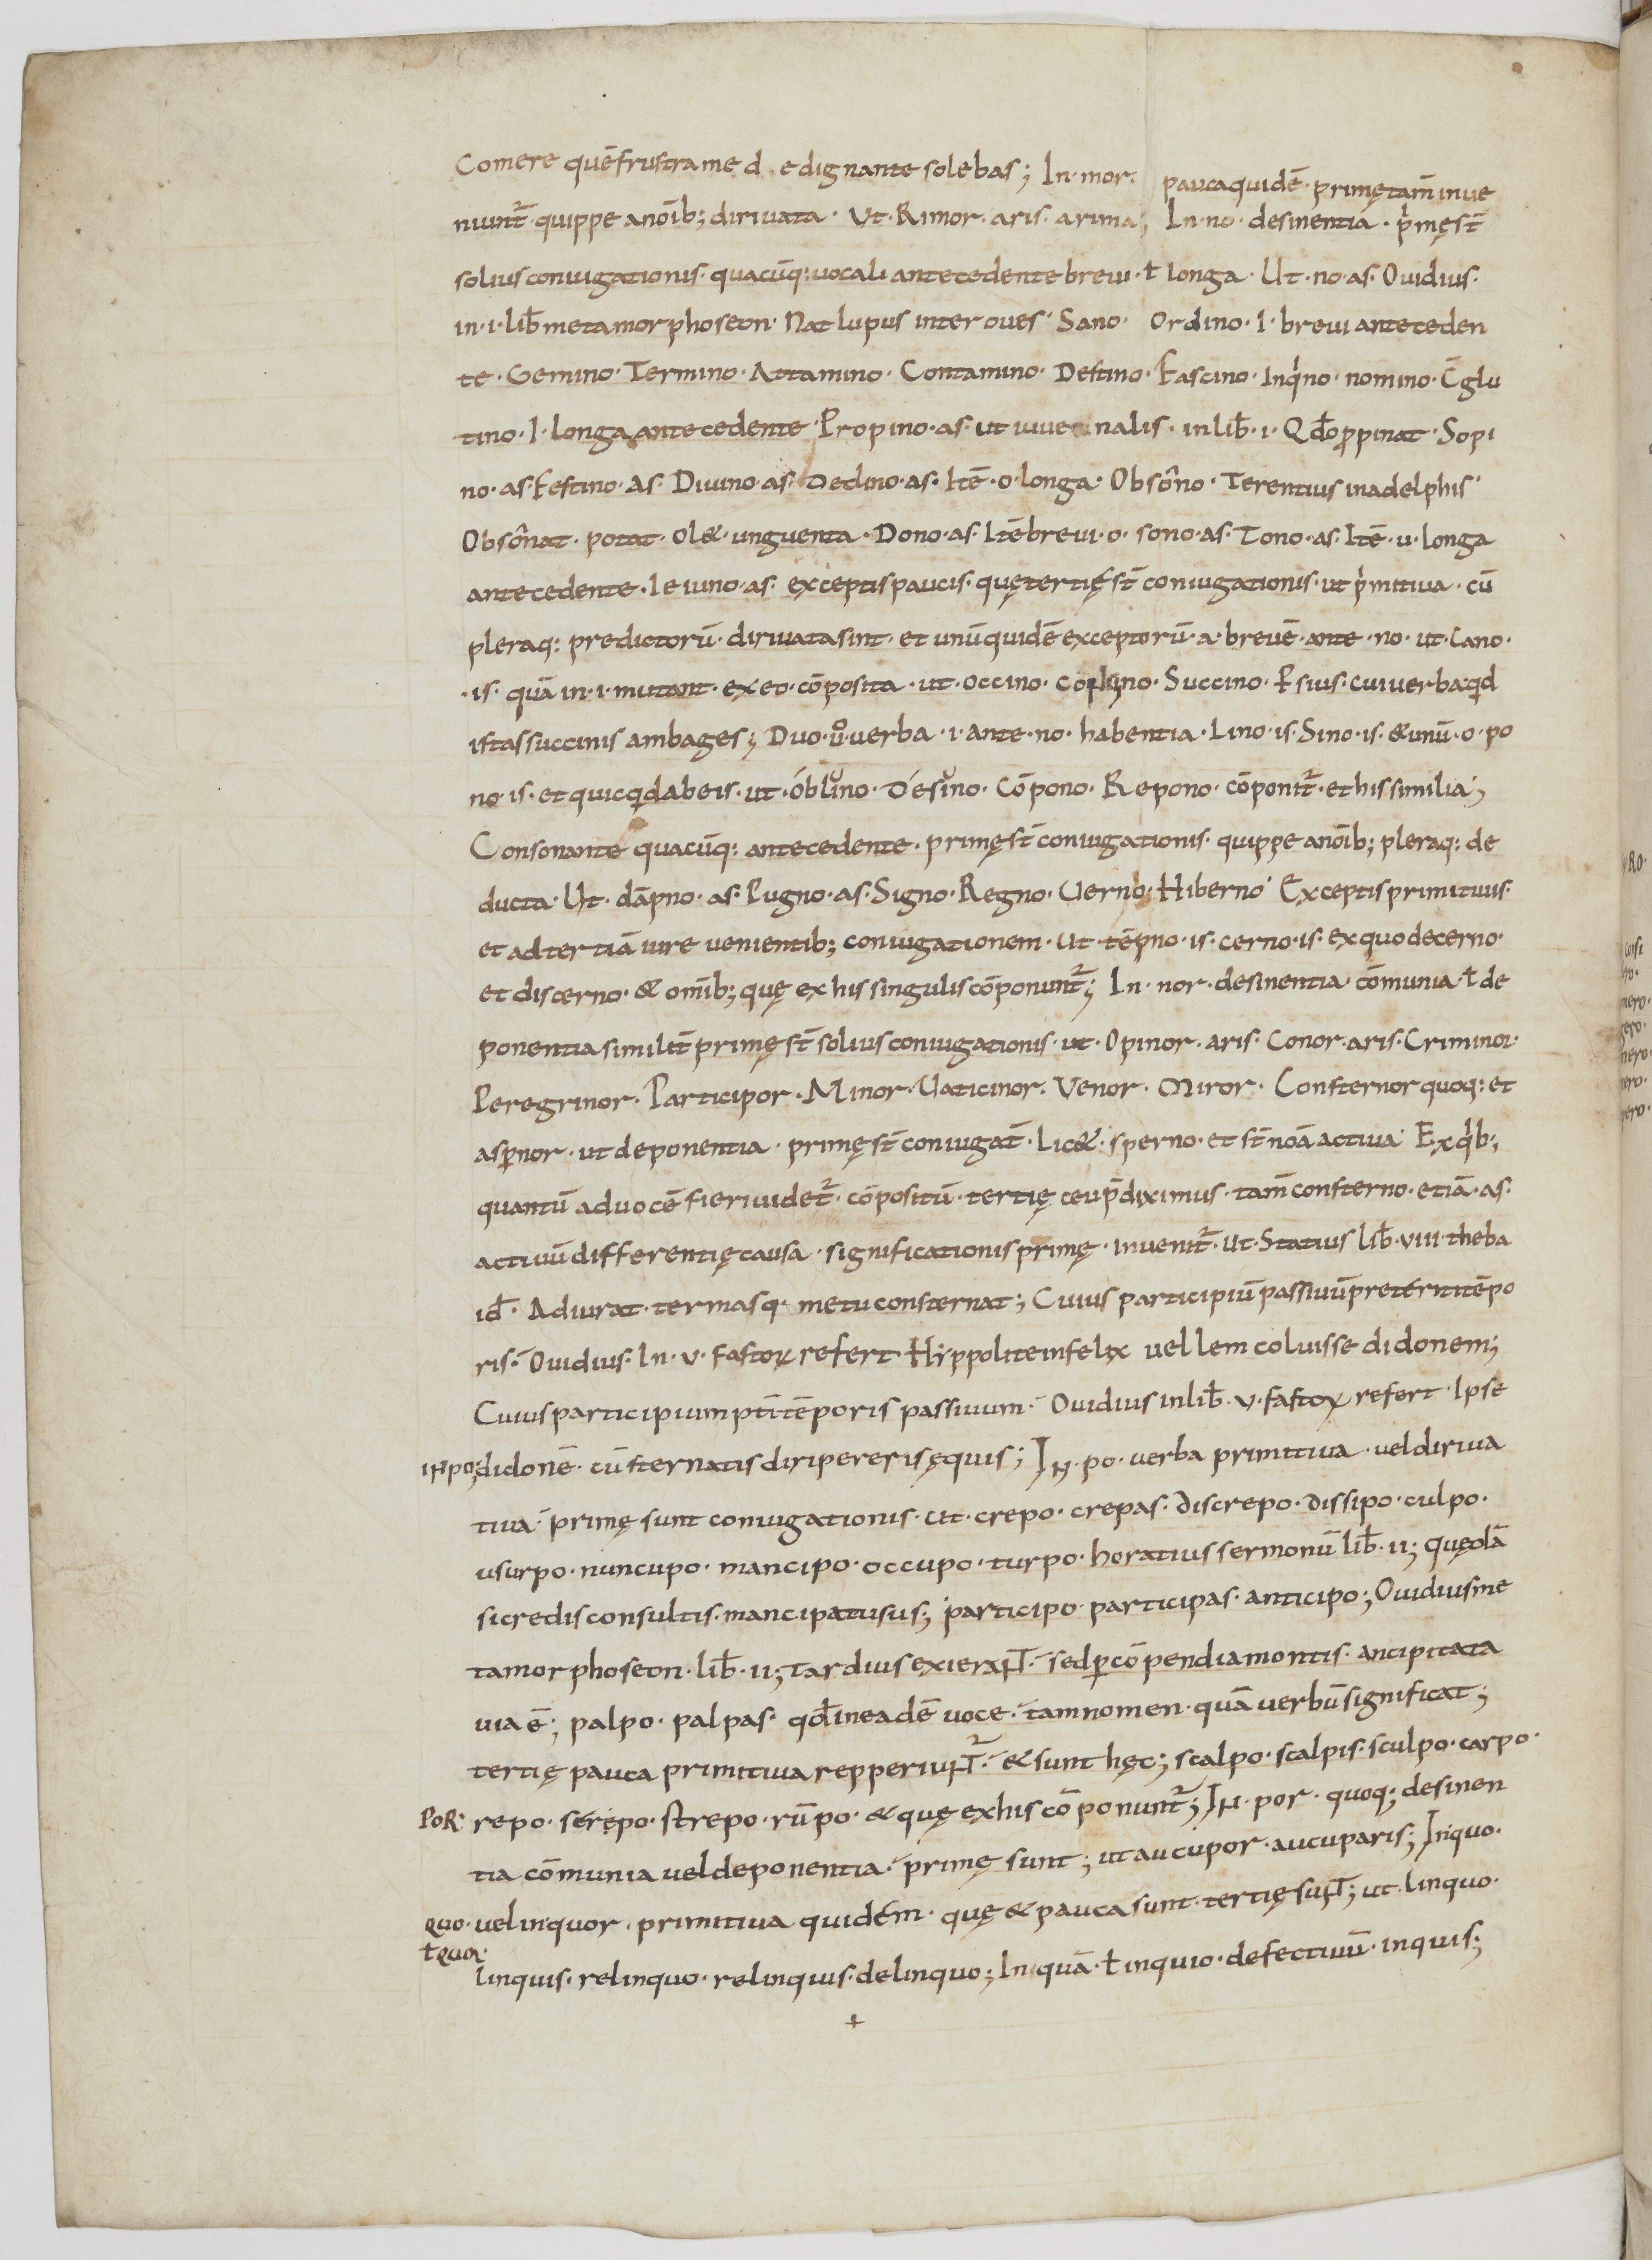 Comere quē frustra me d edignante solebas; In·mor· pauca quidē· primę tam̄ inue
niunt᷑· quippe a noīb; dirivata· Ut· Rimor· aris· a rima; In·no· desinentia· p̍mę st̄
solius coniugationis· quacūq: uocali antecedente breui· ł longa· Ut· no·as· Ouidius·
in·i· lib̄ metamorphoseon· Nat lupus inter oves· Sano· Ordino· I· breui anteceden
te· Gemino· Termino· Attamino· Contamino· Destino· Fascino· Inq̍no· nomino· C̄glu
tino· I· longa antecedente· Propino·as· ut iuvenalis· in lib̄·i· Qd̄o ꝓpinat· Sopi
no·as· Festino·as· Divino·as· Declino·as· Itē·o·longa· Obsôno· Terentius in adelphis·
Obsônat· potat· ol&· unguenta· Dono·as· Itē brevi·o· sono·as· Tono·as· Itē·u·longa
antecedente· Ieiuno·as· exceptis paucis· quę tertię st̄ coniugationis· ut p̍mitiva· cū
pleraq: predictorū· dirivata sint· et unū quidē exceptorū· a· brevē· ante·no· ut· Cano·
·is· quā in·i·mutant· ex eo· cōposita· ut· occino· Succino· Psius· cui verba· qid
istas succinis ambages; Duo·ů·verba·i·ante·no·habentia· Lino·is· Sino·is· & unū·o·po
no·is· et quicqid ab eis· ut· óblino· Désino· Cōpono· Repono· cōponit᷑· et his similia;
Consonante quacūq: antecedente· primę st̄ coniugationis· quippe a noīb; pleraq: de
ducta· Ut· dāpno·as· Pugno·as· Signo· Regno· Uerno; Hiberno· Exceptis primitivis·
et ad tertiā iure venientib; coniugationem· Ut· tēpno·is· cerno·is· ex quo decerno·
et discerno· & om̄ib; quę ex his singulis cōponunt᷑; In·nor·desinentia· cōmunia ł de
ponentia similit̄ primę st̄ solius coniugationis· ut· Opinor·aris· Conor·aris· Criminor·
Peregrinor· Participor· Minor· Uaticinor· Venor· Miror· Consternor quoq: et
aspernor· ut deponentia· primę st̄ coniugat̄· Lic&· sperno· et st̄noā activa· Ex q̍b;
quantū ad uocē fieri uidet᷑· cōpositū· tertię ceu p̄diximus· tam̄ consterno· etiā·as·
activū differentię causa· significationis primę· invenit᷑· Ut· Statius lib̄·viii·theba
id̄· Adiurat· termasq· metu consternat; Cuius participiū passivū preteriti tēpo
ris· Ouidius· In·v· fastoꝝ refert· Hyppolite infelix vellem coluisse didonem;
Cuius participium pt̄i tēporis passivum· Ouidius in lib̄·v·fastoꝝ refert· Ipse
INPO; didonē· cū sternatis diripereris ęquis; IN·po·verba primitiva· vel diriva
tiva· primę sunt coniugationis· Ut· crepo· crepas· discrepo· dissipo· culpo·
usurpo· nuncupo· mancipo· occupo· turpo· horatius sermonū lib̄·ii; quędā
si credis consultis· mancipat usus; participo· participas· anticipo; Ouidius me
tamorphoseon·lib̄·ii; tardius exieraNT· sed ꝑ cōpendia montis· ancipitata
via ē; palpo· palpas· qd̄ in eadē voce· tam nomen· quā verbū significat;
tertię pauca primitiva repperiuNT᷑· & sunt hęc; scalpo· scalpis· sculpo· carpo·
POR· repo· serepo· strepo· rūpo· & quę ex his cōponunt᷑; IN·por·quoq; desinen
tia cōmunia vel deponentia· primę sunt; ut aucupor· aucuparis; In quo·
QUO· vel in quor· primitiva quidém· quę & pauca sunt· tertię suNT; ut· linquo·
ł QUOR·
linquis· relinquo· relinquis· delinquo; Inquā· ł inquio· defectivū· inquis;
+